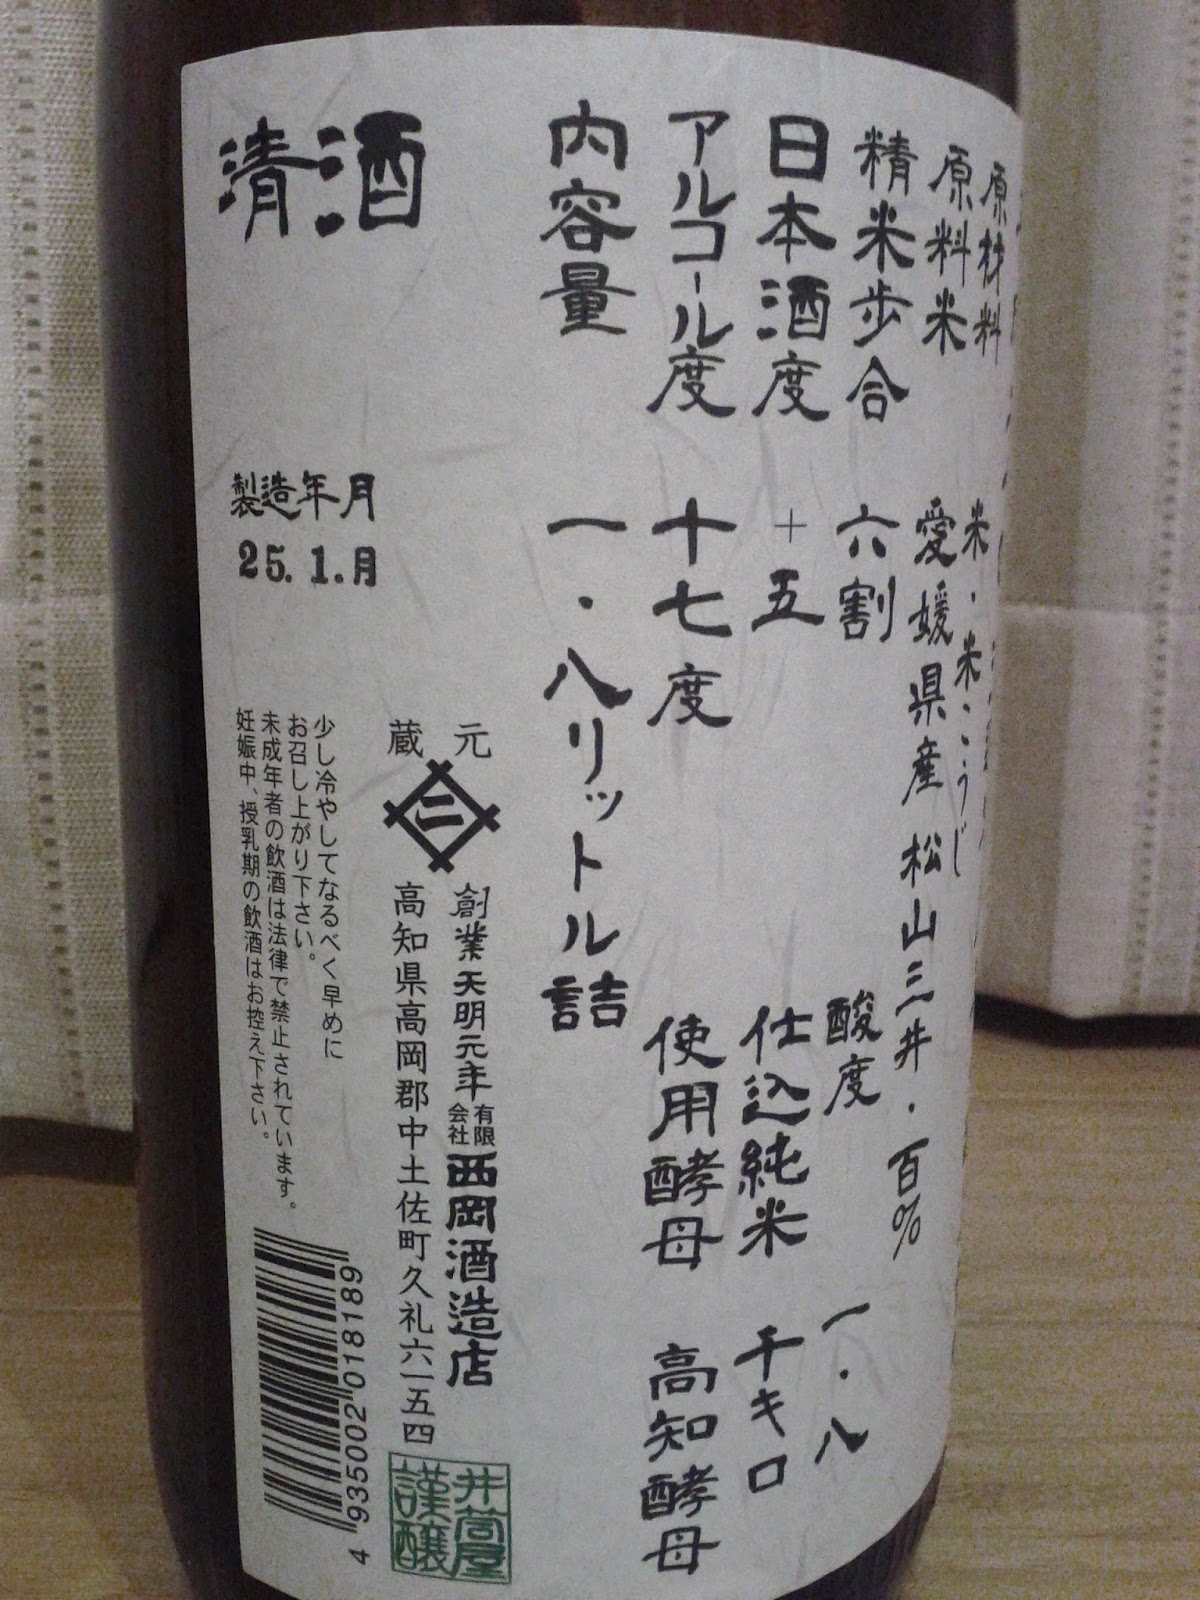 原材料　米・米こうじ
原料米　愛媛県産松山三井・百%
精米歩合　六割
酸度　一・八
日本酒度　＋五
仕込純米　千キロ
アルコール度　十七度
使用酵母　高知酵母
内容量　一・八リットル詰
清酒
製造年月
25.1.月
蔵元
二
創業天明元年 有限会社 西岡酒造店
高知県高岡郡中土佐町久礼六一五四
井筒屋
謹醸
少し冷やしてなるべく早めに
お召し上がり下さい。
未成年者の飲酒は法律で禁止されています。
妊娠中、授乳期の飲酒はお控え下さい。
4 935002 018189